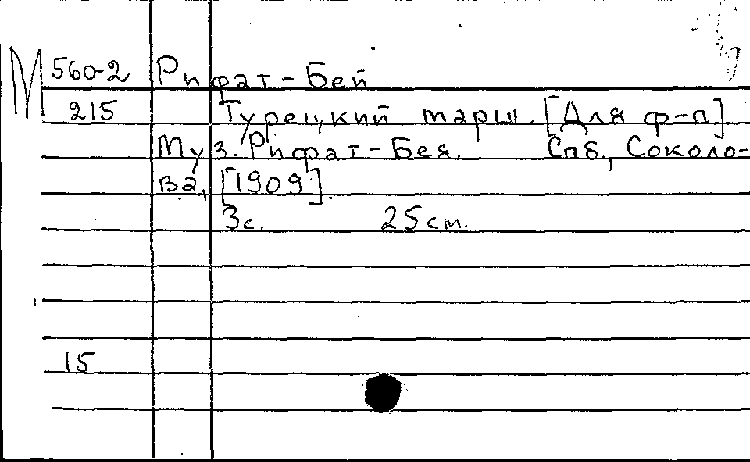 М 560-2 Рифат-Бей
215 Турецкий марш. [Для ф-п]
Муз. Рифат-Бея. Спб., Соколо-
ва, [1909].
3с. 25см.
15